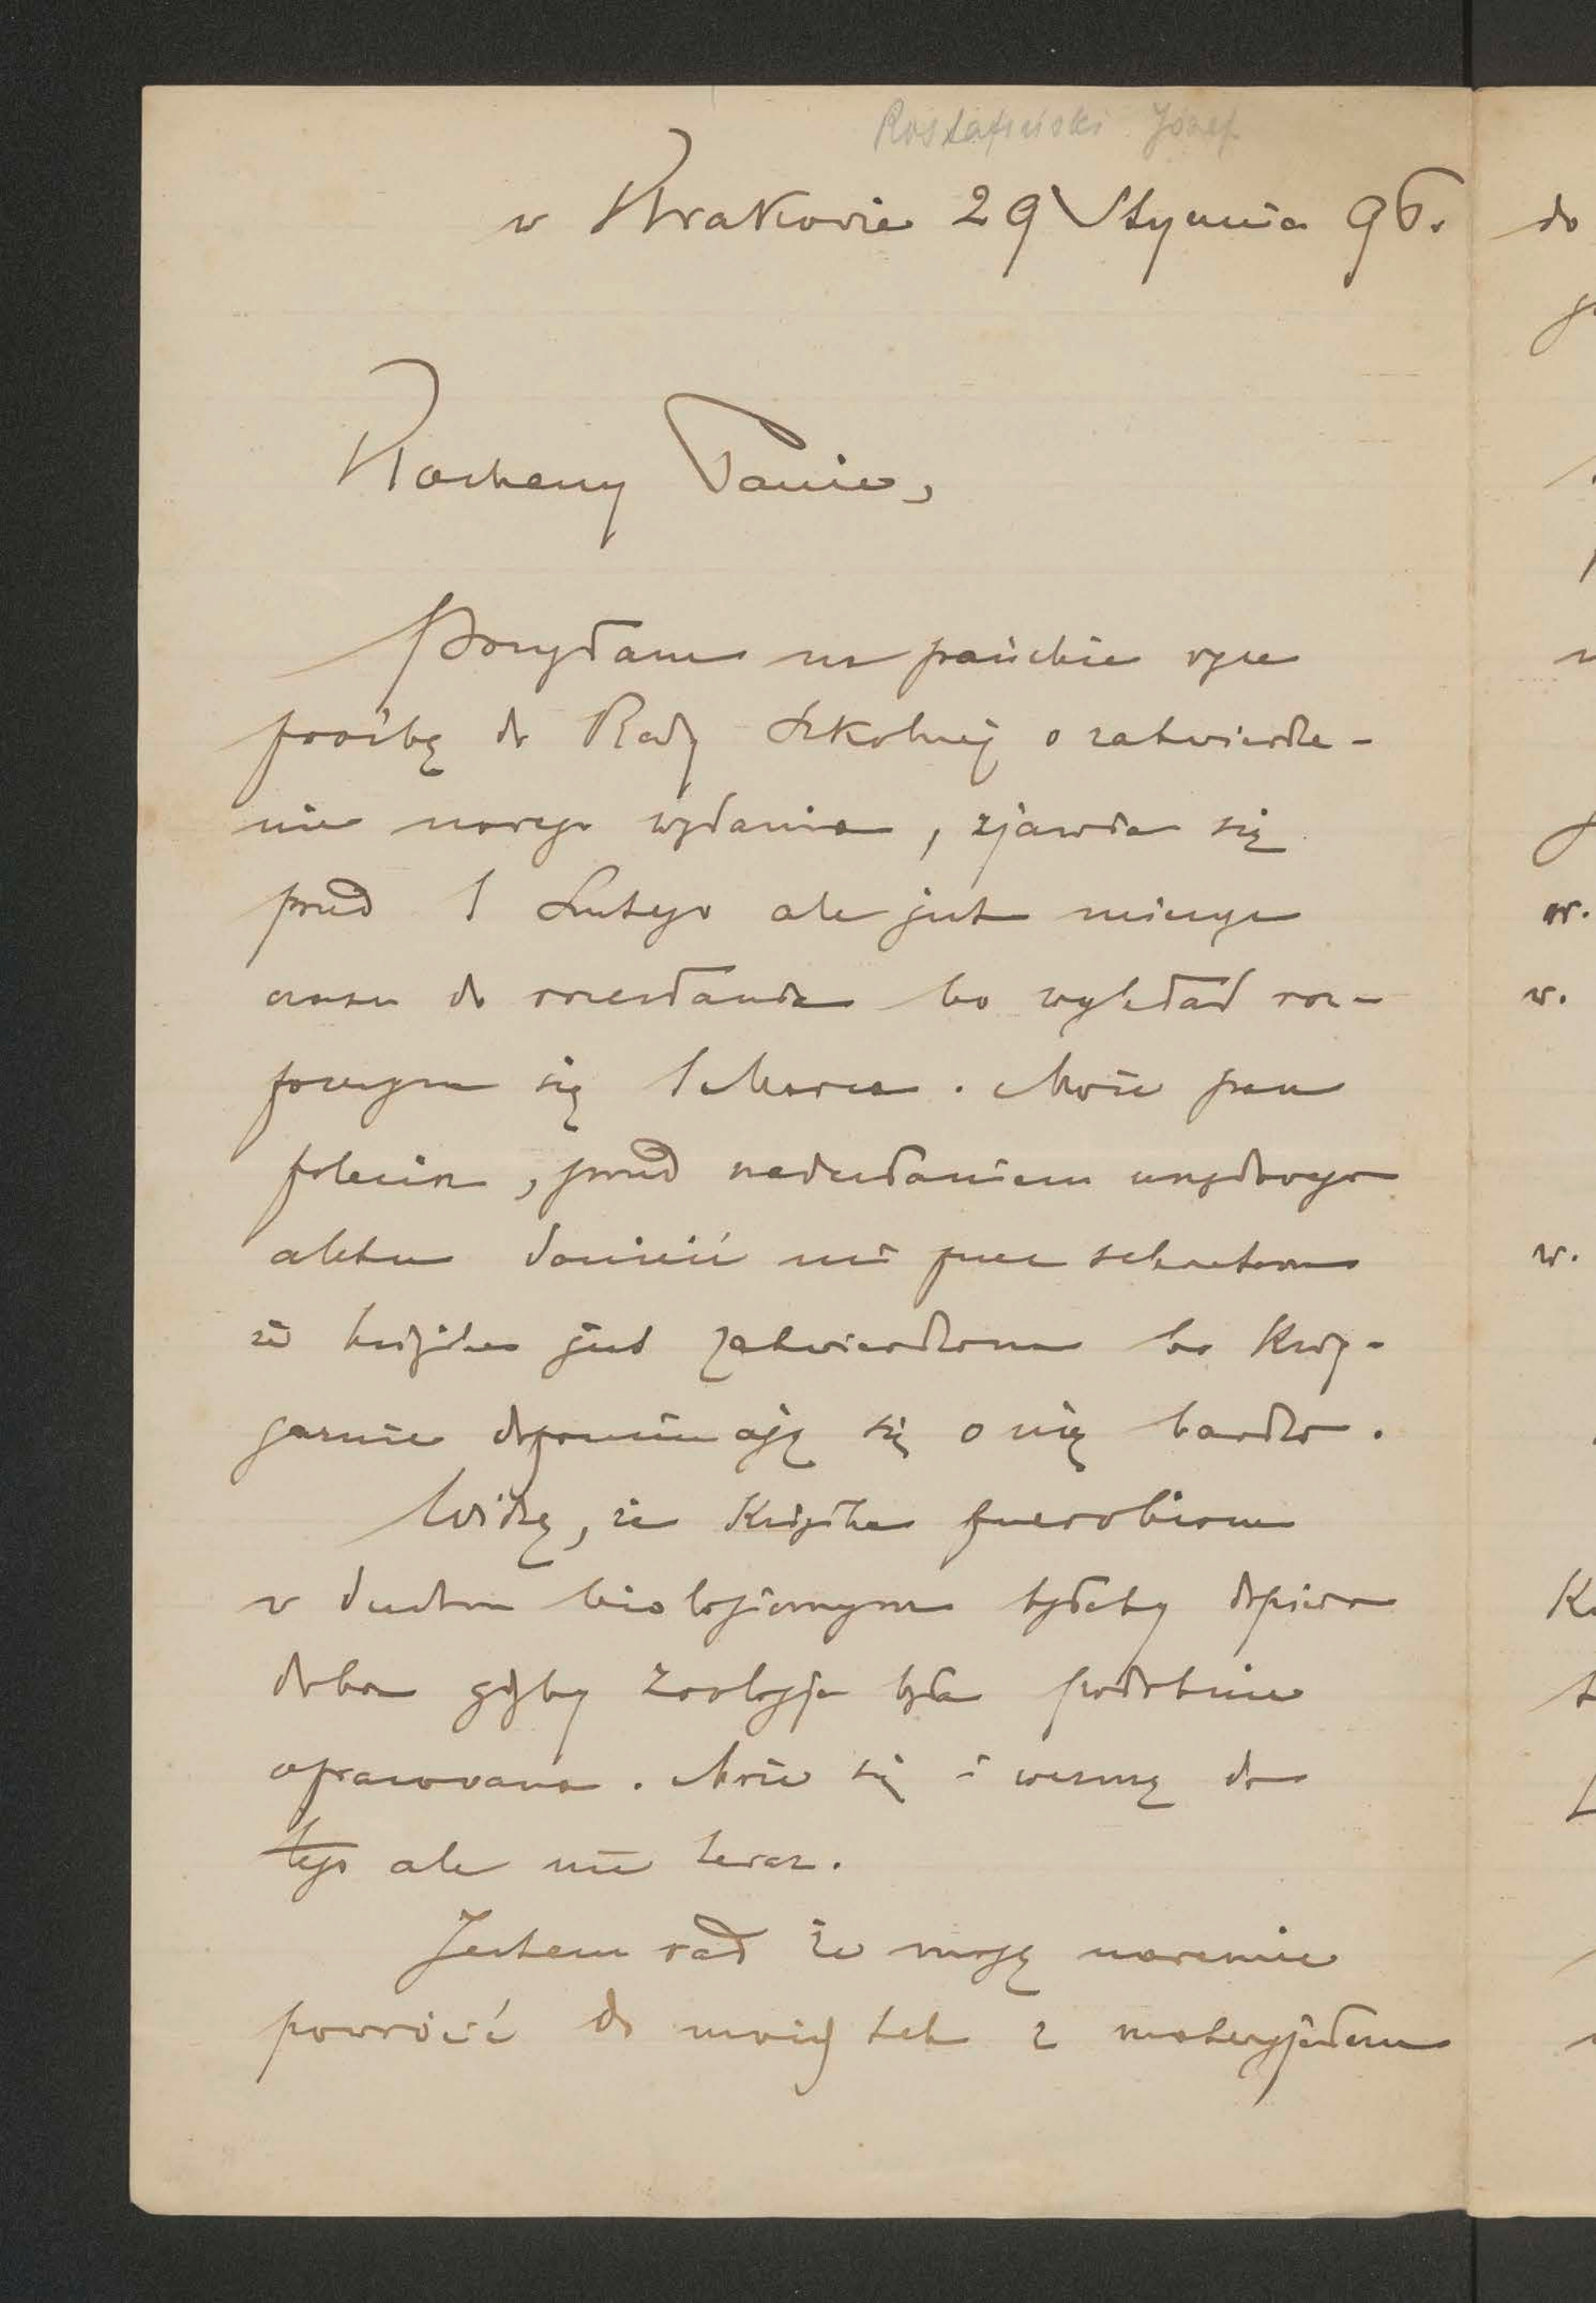 Rostafiński Józef
w Krakowie 29 Stycznia 96.
Kochany Panie,
Przesyłam na pańskie ręce
prośbę do Rady Szkolnej o zatwierdze-
nie nowego wydania, zjawia się
przed 1 Lutego ale jest
czasu do rozesłania bo wykład roz-
poczyna się 1 Marca. Może pan
poleci, przed nadesłaniem urzędowego
aktu donieść mi przez sekretarza
że książka jest zatwierdzona bo Księ-
garnie dopominają się o nię bardzo.
Widzę, że Książka przerobiona
w duchu biologicznym byłaby dopiero
dobra gdyby Zoologja była podobnie
opracowana. Może się i wezmę do
tego ale nie teraz.
Jestem rad że mogę nareszcie
powrócić do moich tek z materyjałem
do
w.
w.